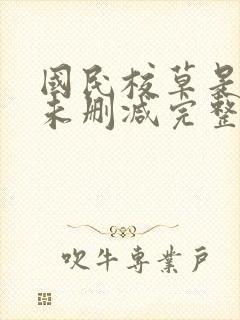 國民校草是
未删减完整
吹牛專業戶